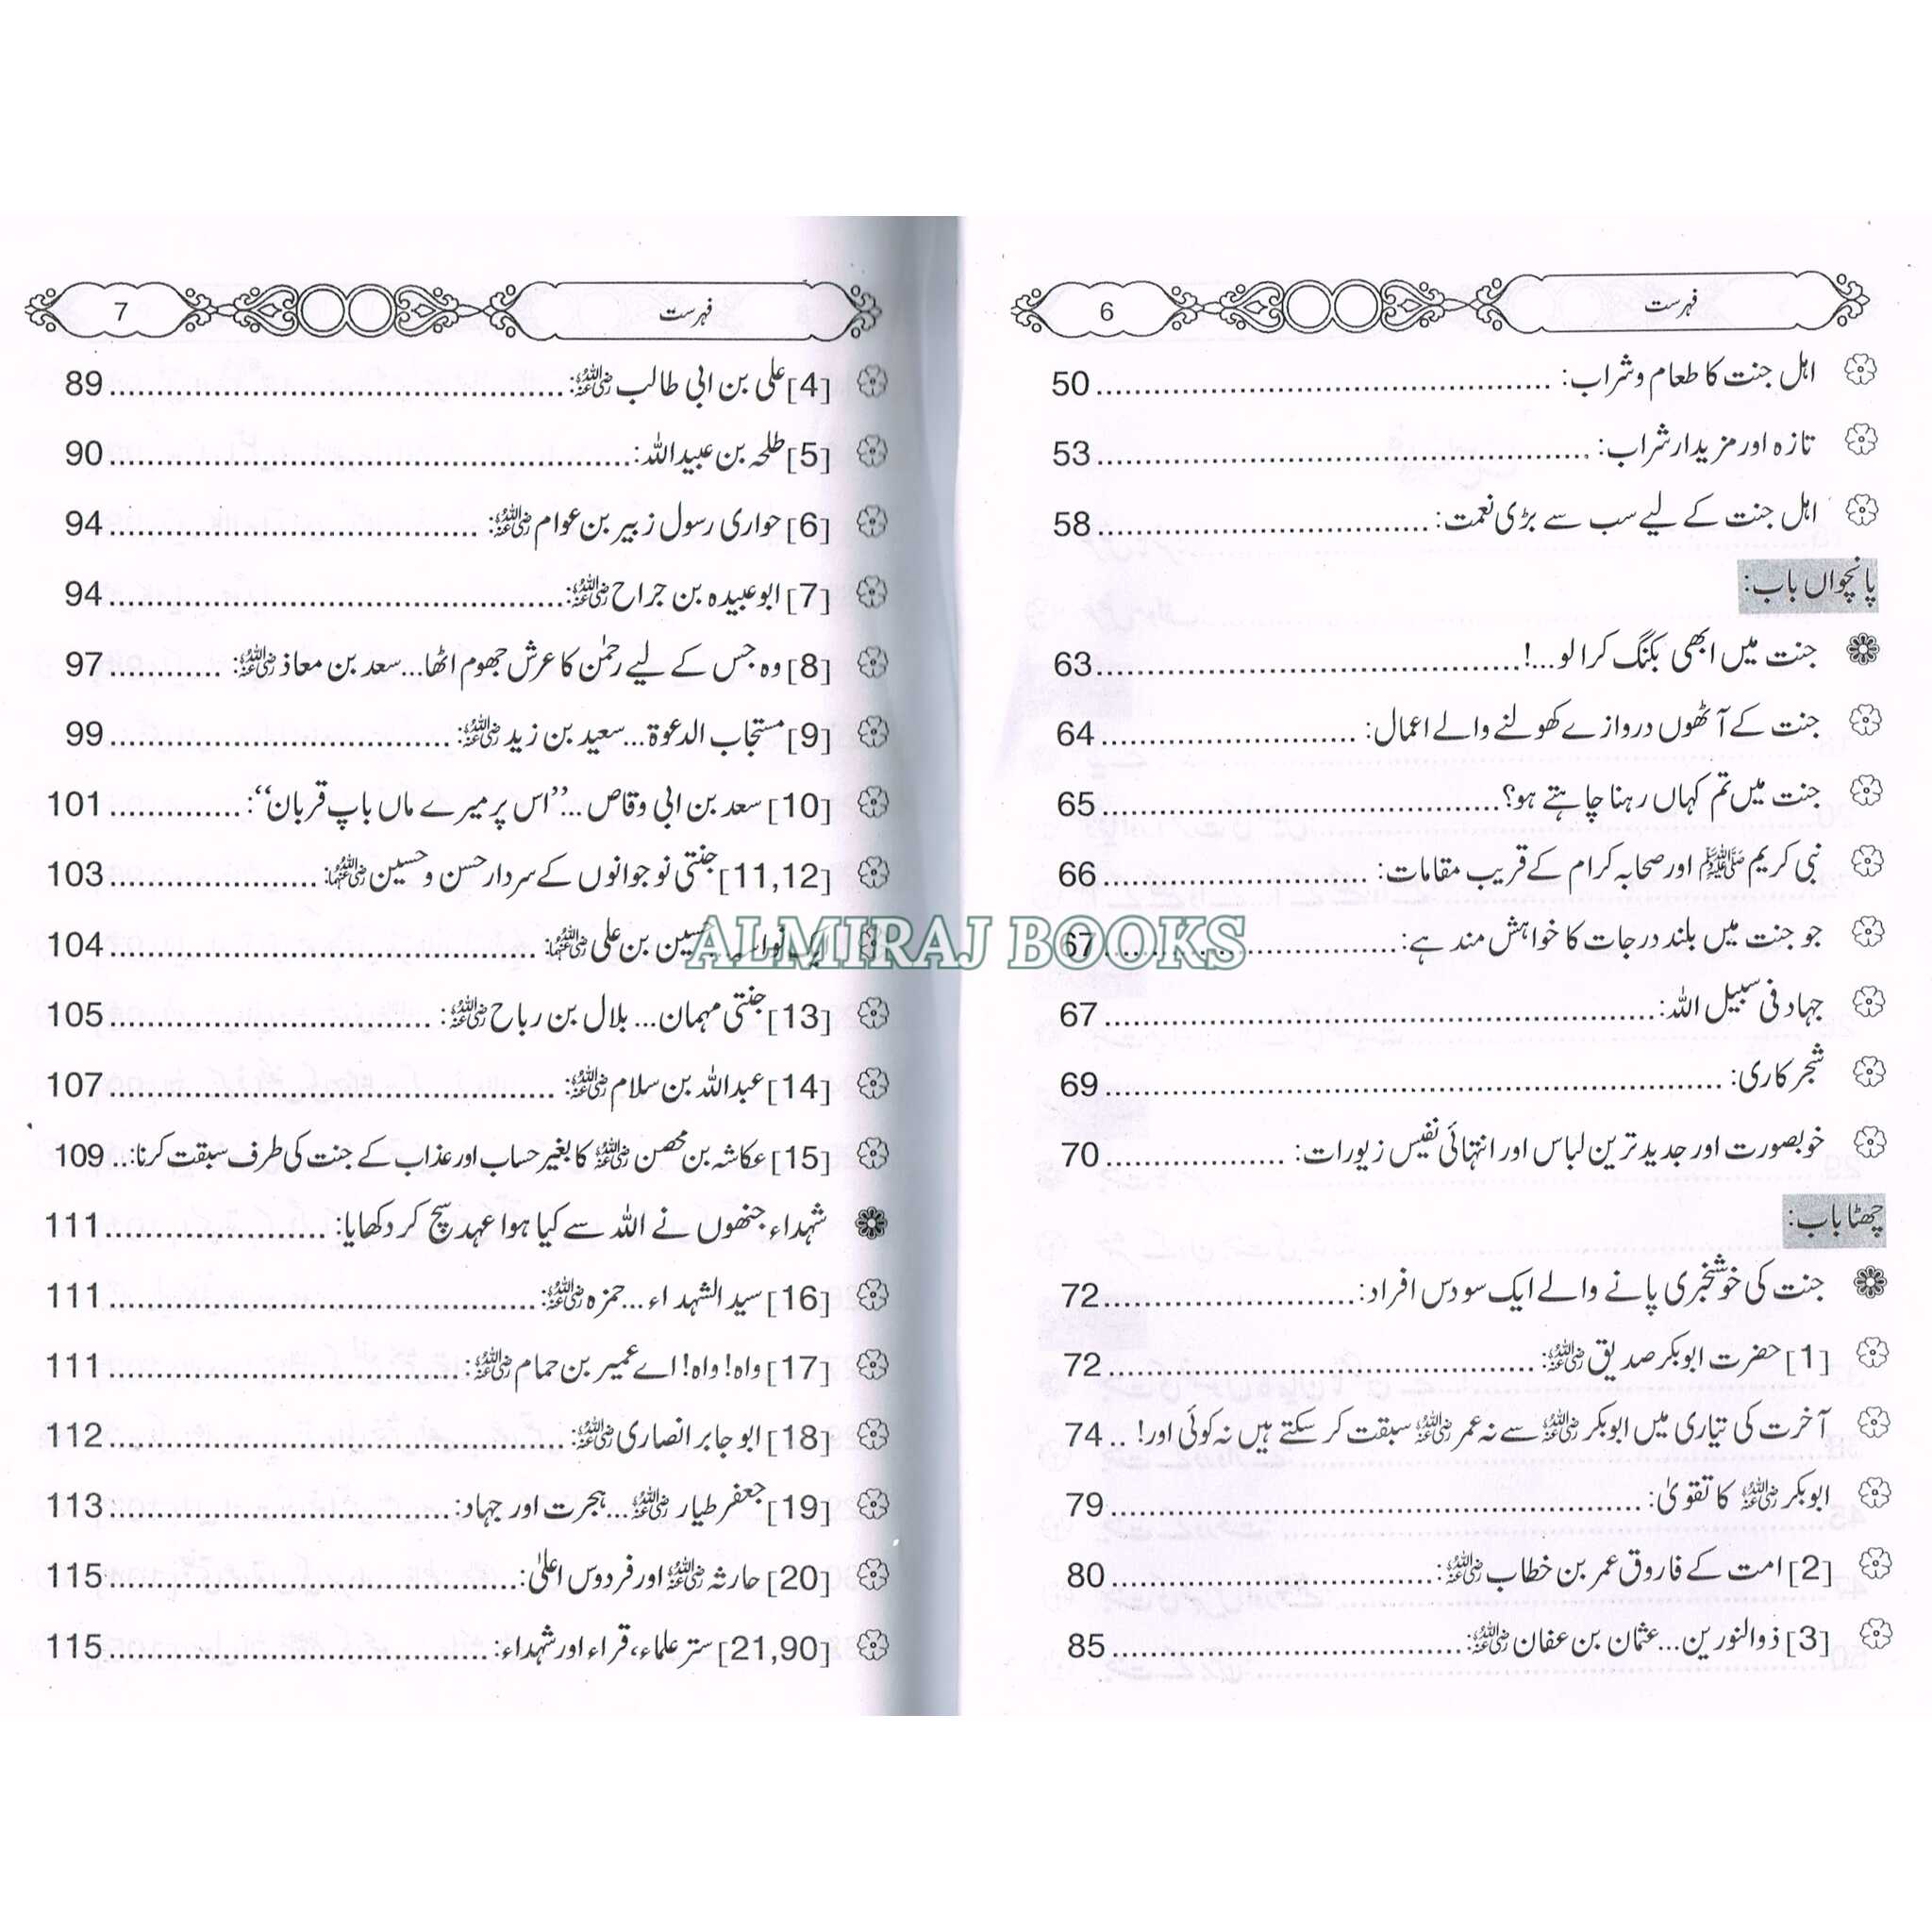 فہرست 6
اہل جنت کا طعام و شراب: 50
تازہ اور مزیدار شراب: 53
اہل جنت کے لیے سب سے بڑی نعمت: 58
پانچواں باب:
جنت میں ابھی بکنگ کرا لو...! 63
جنت کے آٹھوں دروازے کھولنے والے اعمال: 64
جنت میں تم کہاں رہنا چاہتے ہو؟ 65
نبی کریم ﷺ اور صحابہ کرام کے قریب مقامات: 66
جو جنت میں بلند درجات کا خواہش مند ہے: 67
جہاد فی سبیل اللہ: 67
شجر کاری: 69
خوبصورت اور جدید ترین لباس اور انتہائی نفیس زیورات: 70
چھٹا باب:
جنت کی خوشخبری پانے والے ایک سو دس افراد: 72
[1] حضرت ابوبکر صدیق رضی اللہ عنہ: 72
آخرت کی تیاری میں ابوبکر رضی اللہ عنہ سے نہ عمر رضی اللہ عنہ سبقت کر سکتے ہیں نہ کوئی اور! .. 74
ابوبکر رضی اللہ عنہ کا تقویٰ: 79
[2] امت کے فاروق عمر بن خطاب رضی اللہ عنہ: 80
[3] ذوالنورین... عثمان بن عفان رضی اللہ عنہ: 85
فہرست 7
[4] علی بن ابی طالب رضی اللہ عنہ: 89
[5] طلحہ بن عبیداللہ: 90
[6] حواری رسول زبیر بن عوام رضی اللہ عنہ: 94
[7] ابوعبیدہ بن جراح رضی اللہ عنہ: 94
[8] وہ جس کے لیے رحمٰن کا عرش جھوم اٹھا... سعد بن معاذ رضی اللہ عنہ: 97
[9] مستجاب الدعوۃ... سعید بن زید رضی اللہ عنہ: 99
[10] سعد بن ابی وقاص... ”اس پر میرے ماں باپ قربان“: 101
[11,12] جنتی نوجوانوں کے سردار حسن و حسین رضی اللہ عنہما: 103
نواسہ حسین بن علی رضی اللہ عنہما: 104
[13] جنتی مہمان... بلال بن رباح رضی اللہ عنہ: 105
[14] عبداللہ بن سلام رضی اللہ عنہ: 107
[15] عکاشہ بن محصن رضی اللہ عنہ کا بغیر حساب اور عذاب کے جنت کی طرف سبقت کرنا: .. 109
شہداء جنھوں نے اللہ سے کیا ہوا عہد سچ کر دکھایا: 111
[16] سید الشہداء... حمزہ رضی اللہ عنہ: 111
[17] واہ! واہ! اے عمیر بن حمام رضی اللہ عنہ: 111
[18] ابو جابر انصاری رضی اللہ عنہ: 112
[19] جعفر طیار رضی اللہ عنہ... ہجرت اور جہاد: 113
[20] حارثہ رضی اللہ عنہ اور فردوس اعلیٰ: 115
[21,90] ستر علماء، قراء اور شہداء: 115
ALMIRAJ BOOKS